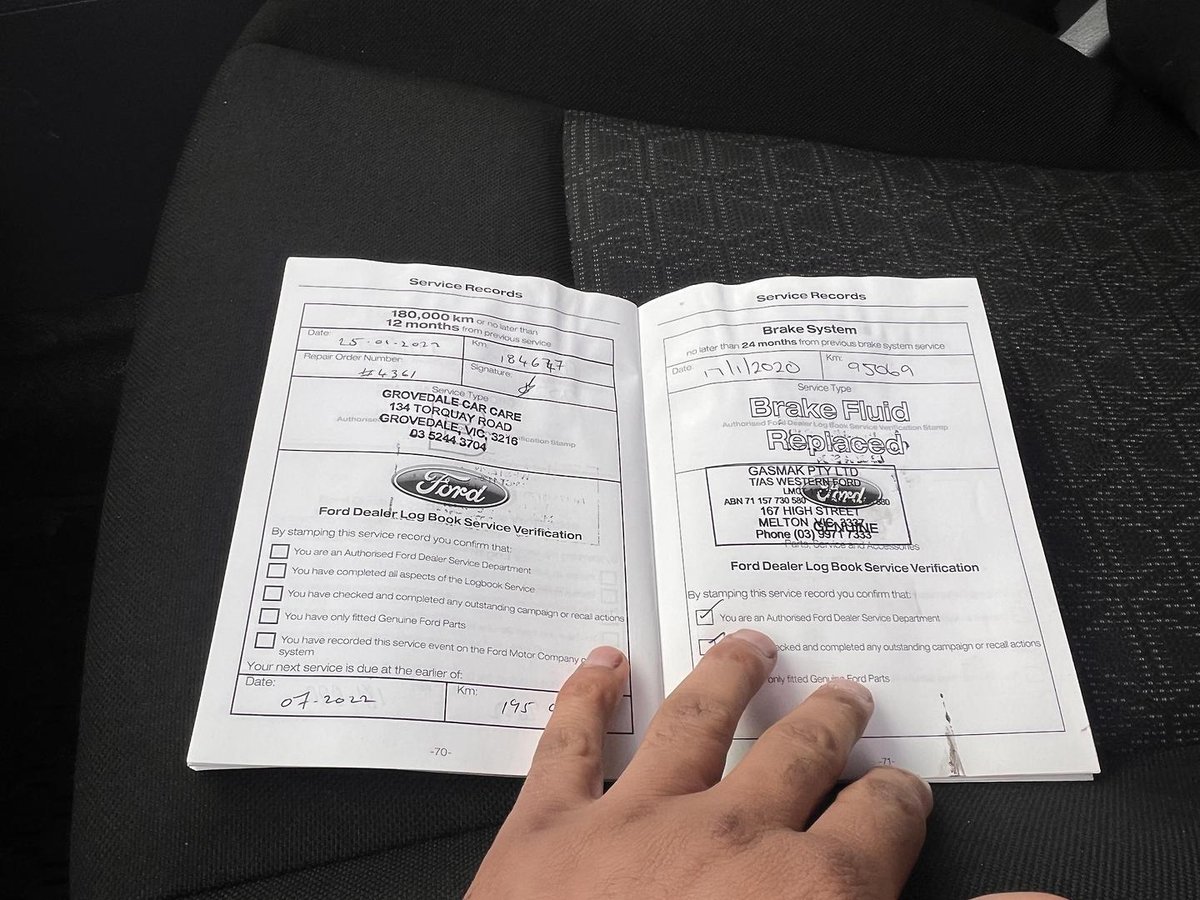 Service Records
180,000 km or no later than
12 months from previous service
Date: 25-01-2022
Km: 184647
Repair Order Number: #4361
Signature:
Service Type
GROVEDALE CAR CARE
134 TORQUAY ROAD
GROVEDALE, VIC, 3216
03 5244 3704
Ford
Ford Dealer Log Book Service Verification
By stamping this service record you confirm that:
You are an Authorised Ford Dealer Service Department
You have completed all aspects of the Logbook Service
You have checked and completed any outstanding campaign or recall actions
You have only fitted Genuine Ford Parts
You have recorded this service event on the Ford Motor Company
system
Your next service is due at the earlier of:
Date: 07-2022
Km: 195
-70-
Service Records
Brake System
no later than 24 months from previous brake system service
Date: 17/1/2020
Km: 95069
Service Type
Brake Fluid
Authorised Ford Dealer Log Book Service Verification Stamp
Replaced
GASMAK PTY LTD
T/AS WESTERN FORD
Ford
ABN 71 157 730 580
167 HIGH STREET
MELTON VIC 3337
GENUINE
Phone (03) 9971 7333
Parts, Service and Accessories
Ford Dealer Log Book Service Verification
By stamping this service record you confirm that:
You are an Authorised Ford Dealer Service Department
checked and completed any outstanding campaign or recall actions
only fitted Genuine Ford Parts
-71-